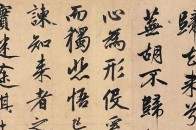 歸去
蕪胡不歸
心為形役
而獨悲悟已
諫知来者之
實迷途其